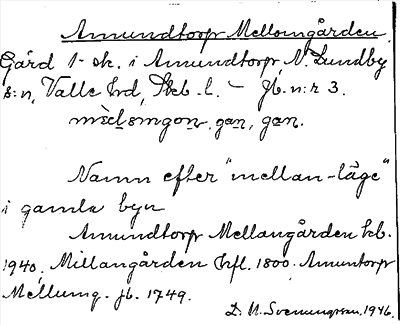 Amundtorp Mellomgården.
Gård 1 sk. i Amundtorp, N. Lundby
s:n, Valle hd, Skb. l. – Jb. n:r 3.
mèlsmgon, gan, gan.
Namn efter "mellan-läge"
i gamla byn
Amundtorp Mellangården kb.
1940. Millangården hfl. 1800. Amuntorp
Mellumg. jb. 1749.
D. N. Svenungsson. 1946.